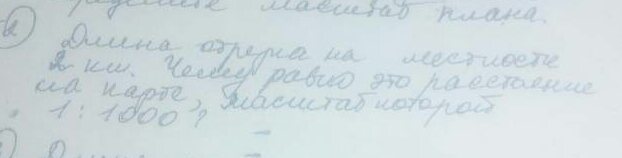 масштаб плана.
2) Длина отрезка на местности
2 км. Чему равно это расстояние
на карте, масштаб которой
1 : 1000?